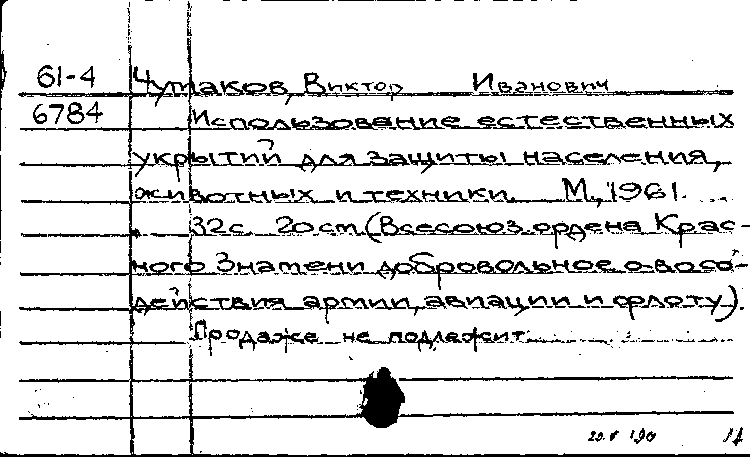 61-4 Чумаков, Виктор Иванович
6784 Использование естественных
укрытий для защиты населения,
животных и техники. М., 1961.
32с. 20см. (Всесоюз. ордена Крас-
ного Знамени добровольное о-во со-
действия армии, авиации и флоту).
Продаже не подлежит